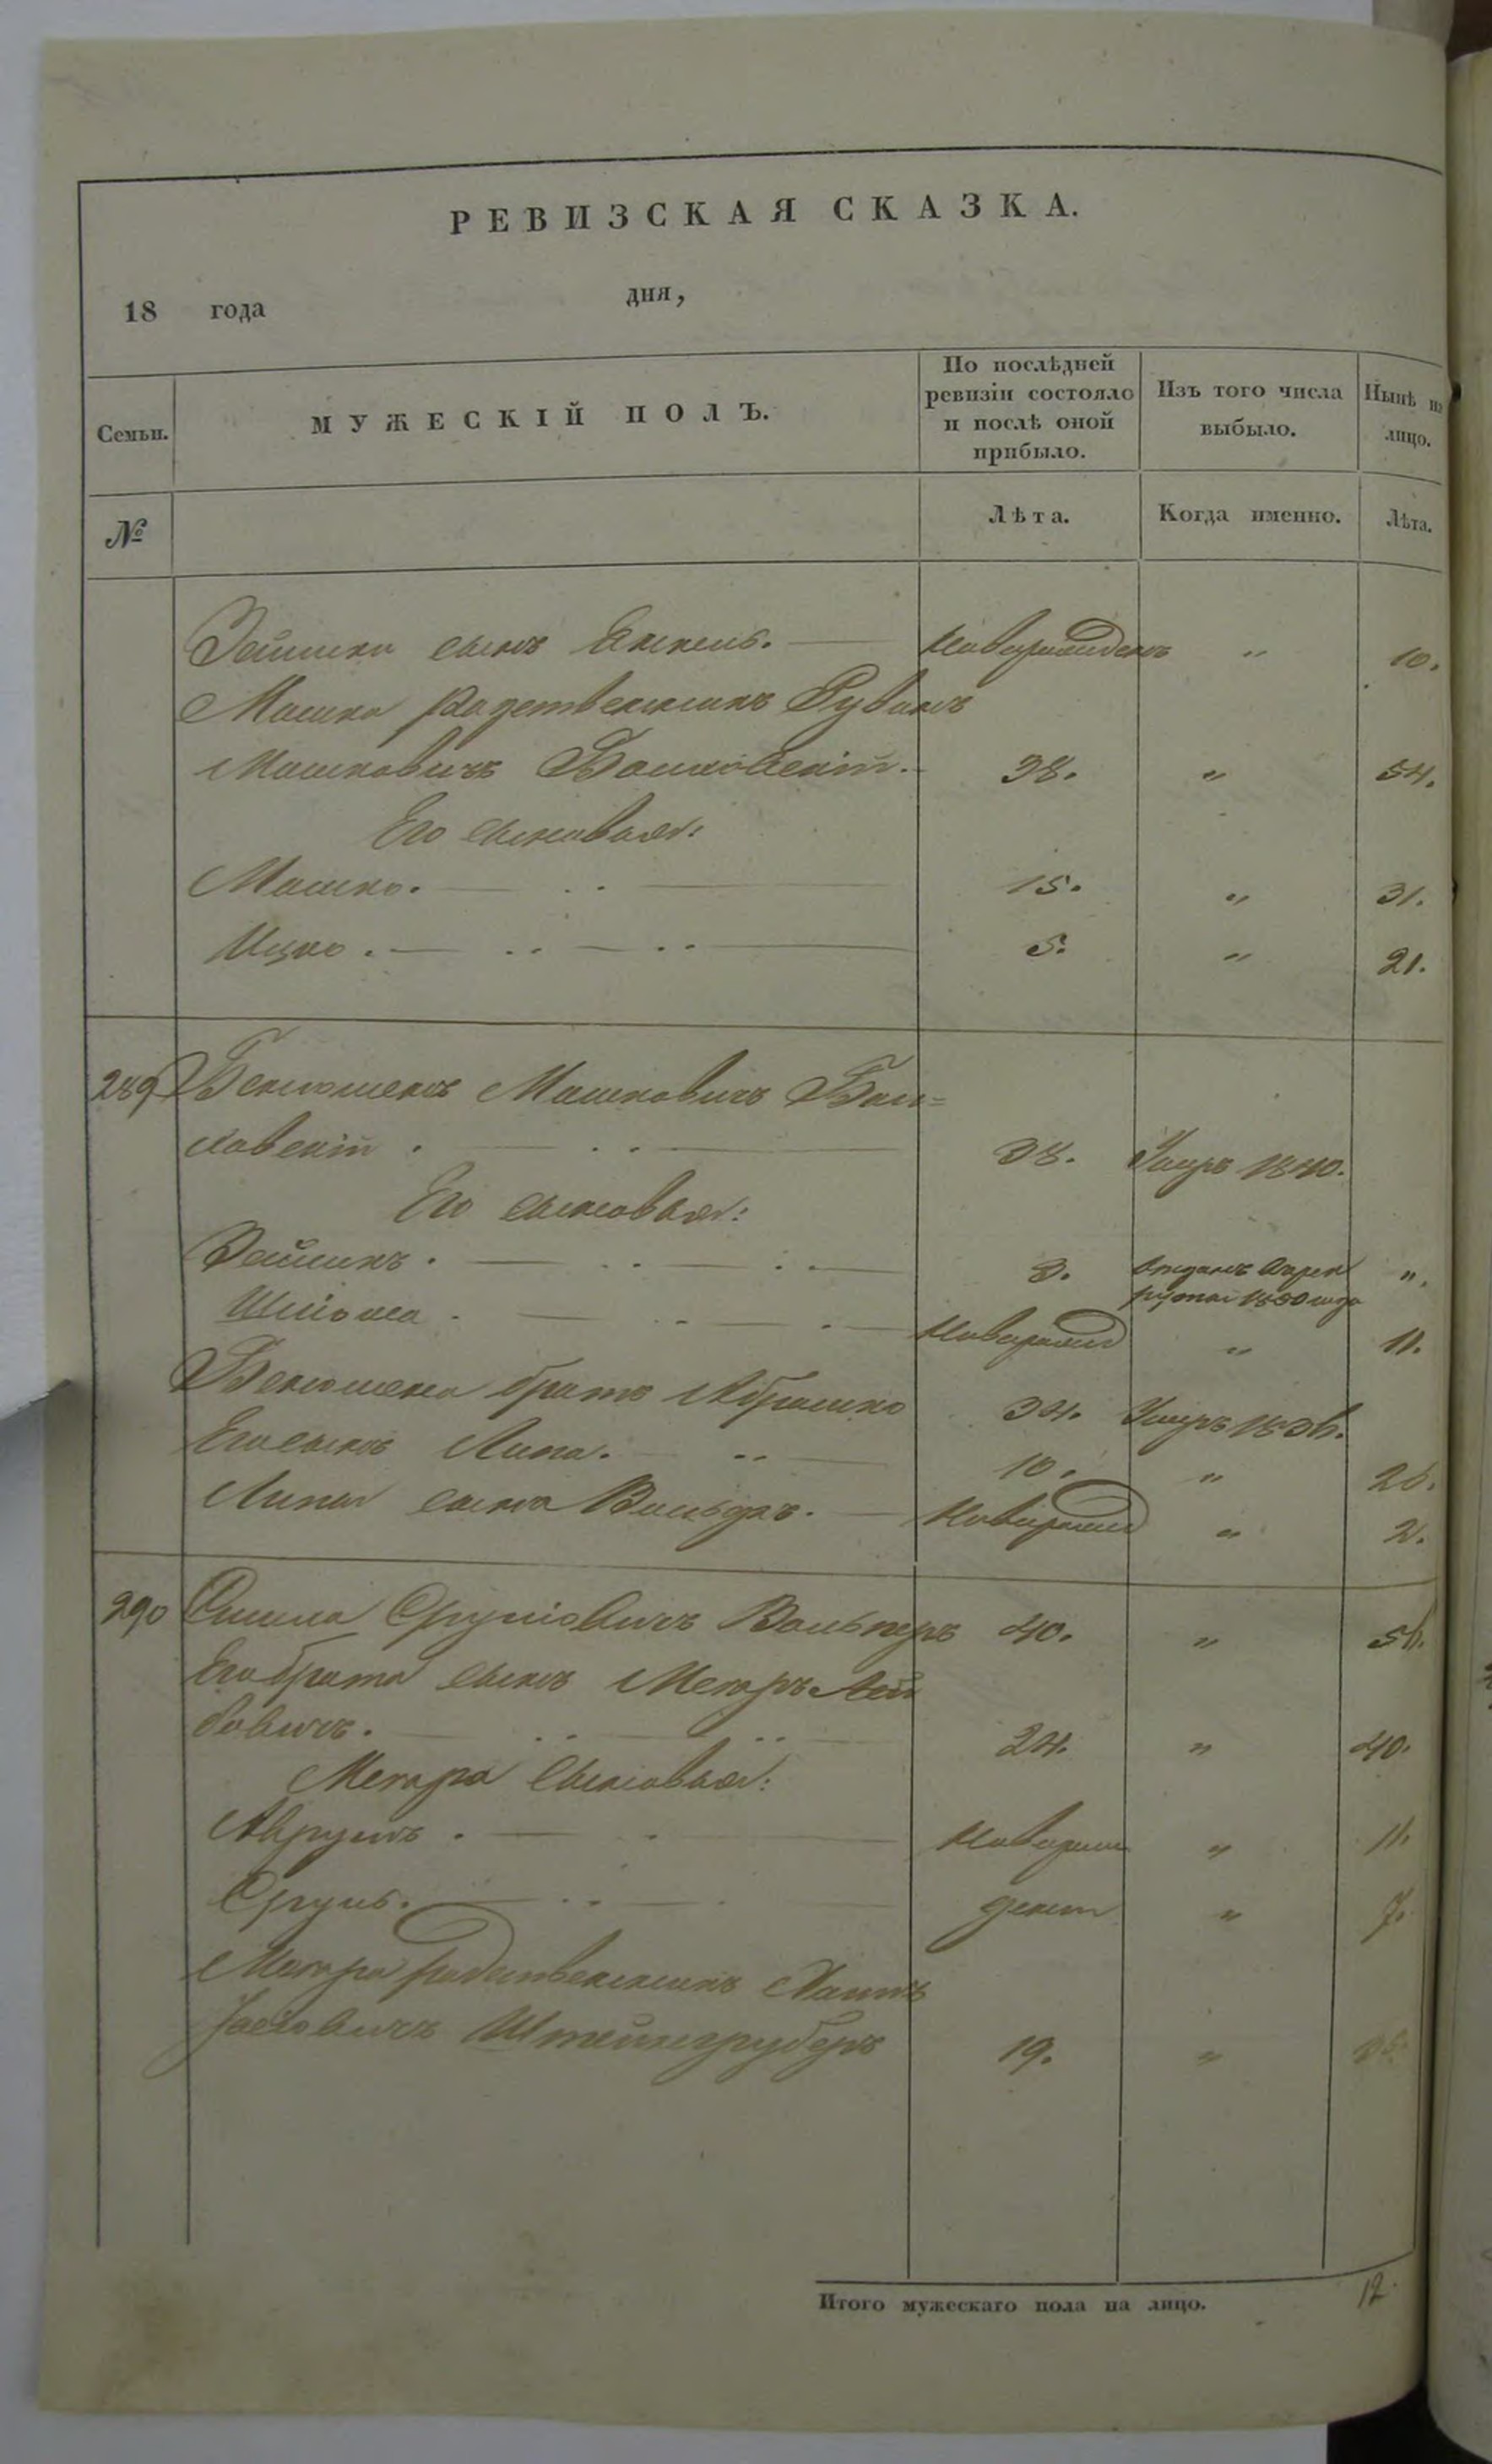 РЕВИЗСКАЯ СКАЗКА.
18 года дня,
Семьи. МУЖЕСКІЙ ПОЛЪ. По послѣдней ревизіи состояло и послѣ оной прибыло. Изъ того числа выбыло. Нынѣ на лицо.
№ Лѣта. Когда именно. Лѣта.
сынъ новорожденъ " 10.
Мошка родственникъ Рувинъ
Мошковичъ 38. " 54.
Его сыновья:
Мошко. 15. " 31.
Ицко. 5. " 21.
289 Беньоменъ Мошковичъ
ковскій. 38. Умръ 1840.
Его сыновья:
Зейликъ. 3. отданъ в рек
руты 1850 года ".
Шліома. новорожд " 11.
Беньомена братъ Абрашко 34. Умръ 1836.
Его сынъ Липа. 10. " 26.
Липы сынъ новорожд " 2.
290 Сруліовичъ 40. " 56.
Его брата сынъ Мееръ Лей
бовичъ. 24. " 40.
Меера сыновья:
Аврумъ. новорож " 11.
Сруль. денъ " 7.
Меера родственникъ
Іосіовичъ Штейнгруберъ 19. " 35.
Итого мужескаго пола на лицо. 12.